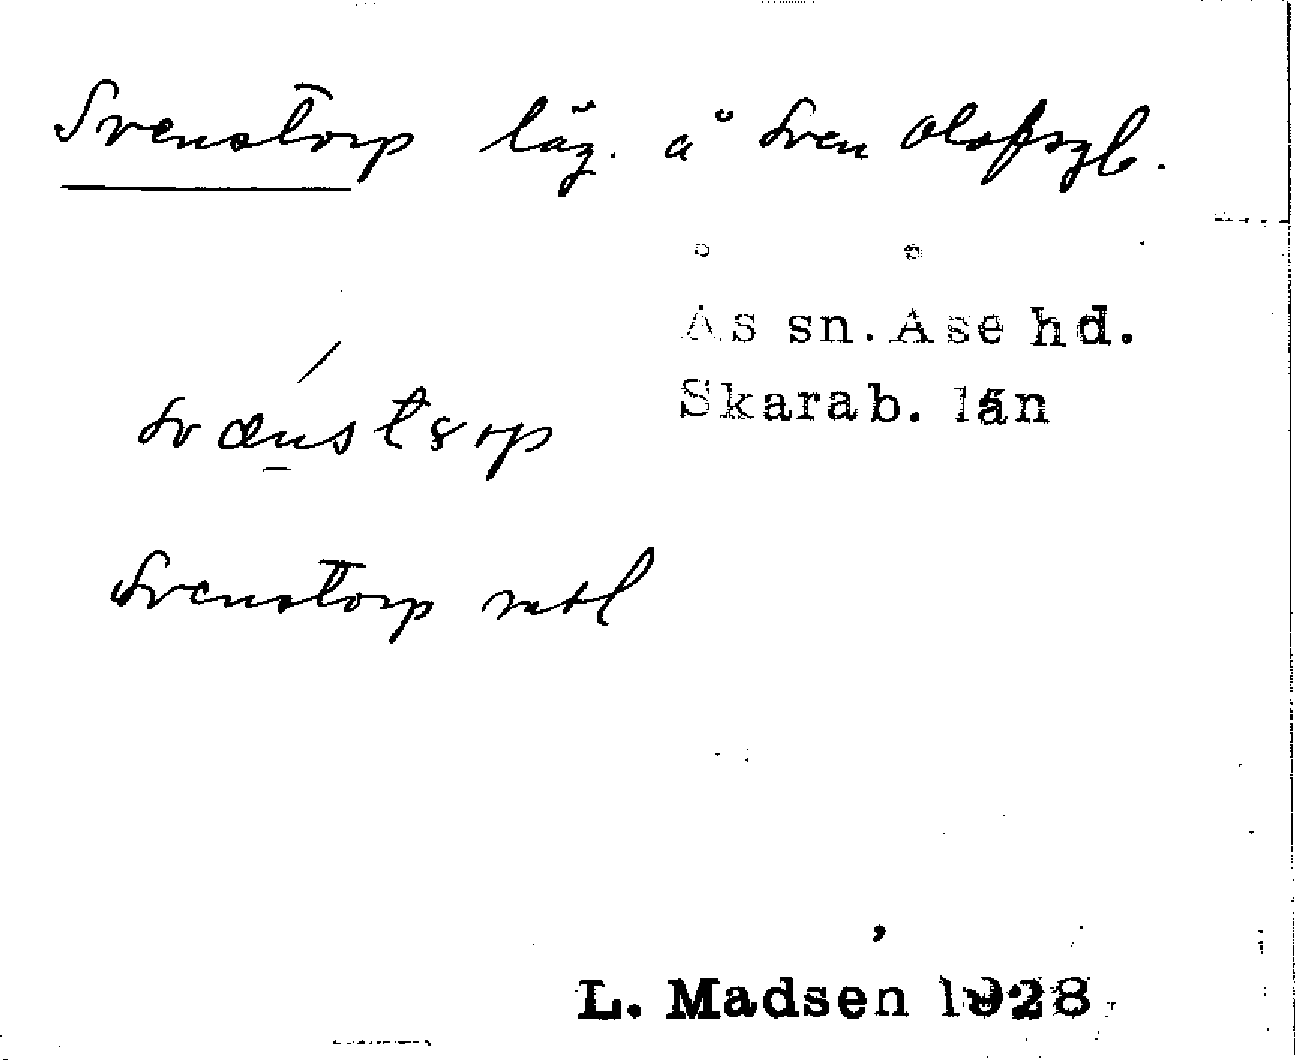 Svenstorp läg. å Sven Olofsgb.
Ås sn. Åse hd.
Skarab. län
svænstɤrp
Svenstorp mtl
L. Madsen 1928